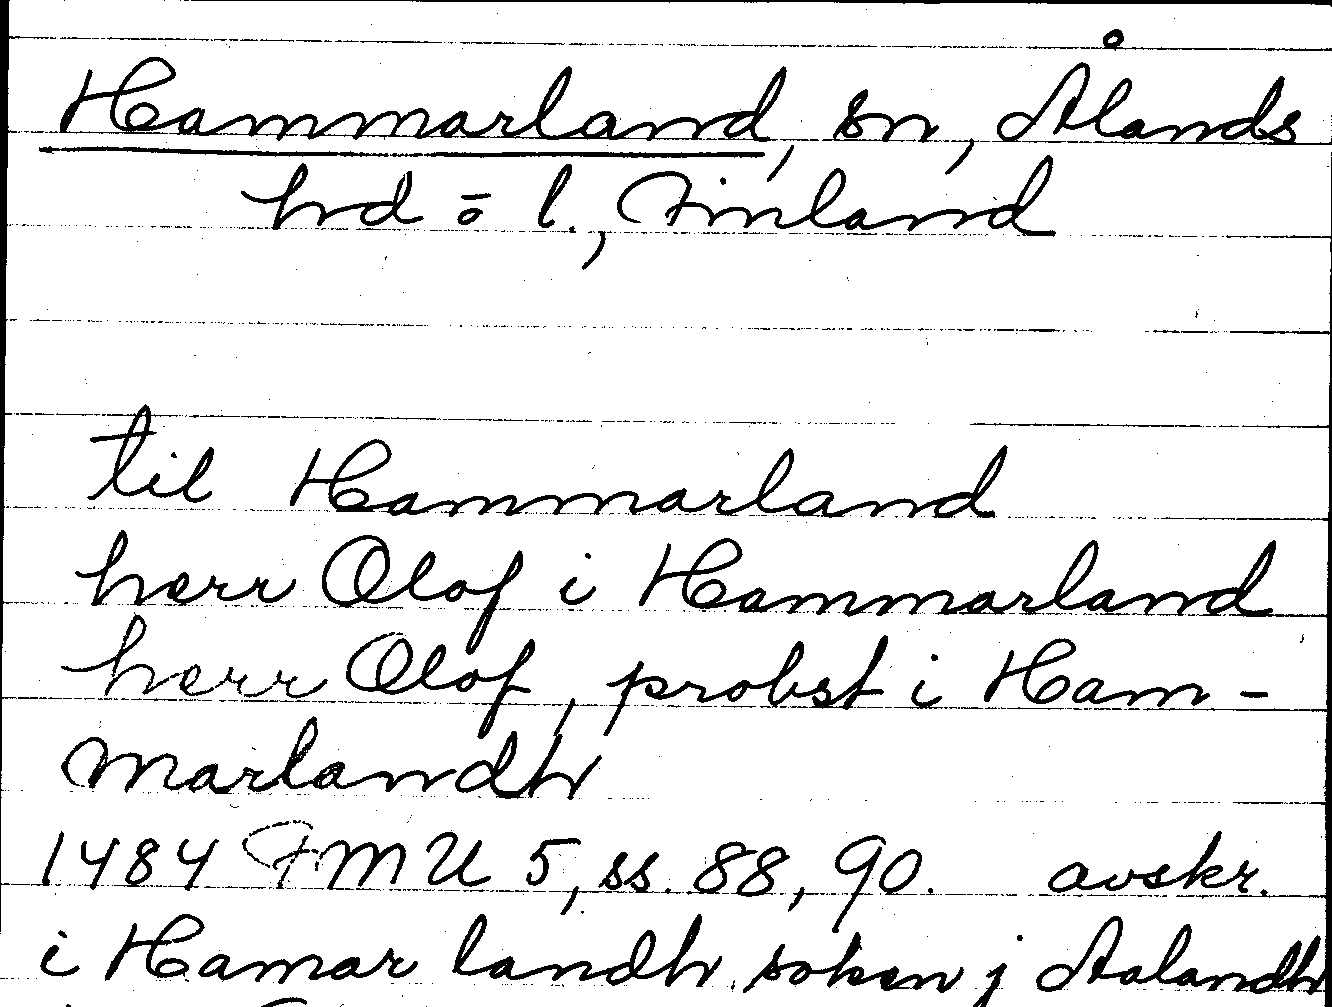 Hammarland, sn, Ålands
hd o l., Finland
til Hammarland
herr Olof i Hammarland
herr Olof, probst i Ham-
marlandh
1484 FMU 5, ss. 88, 90. avskr.
i Hamar landh soken j Aalandh